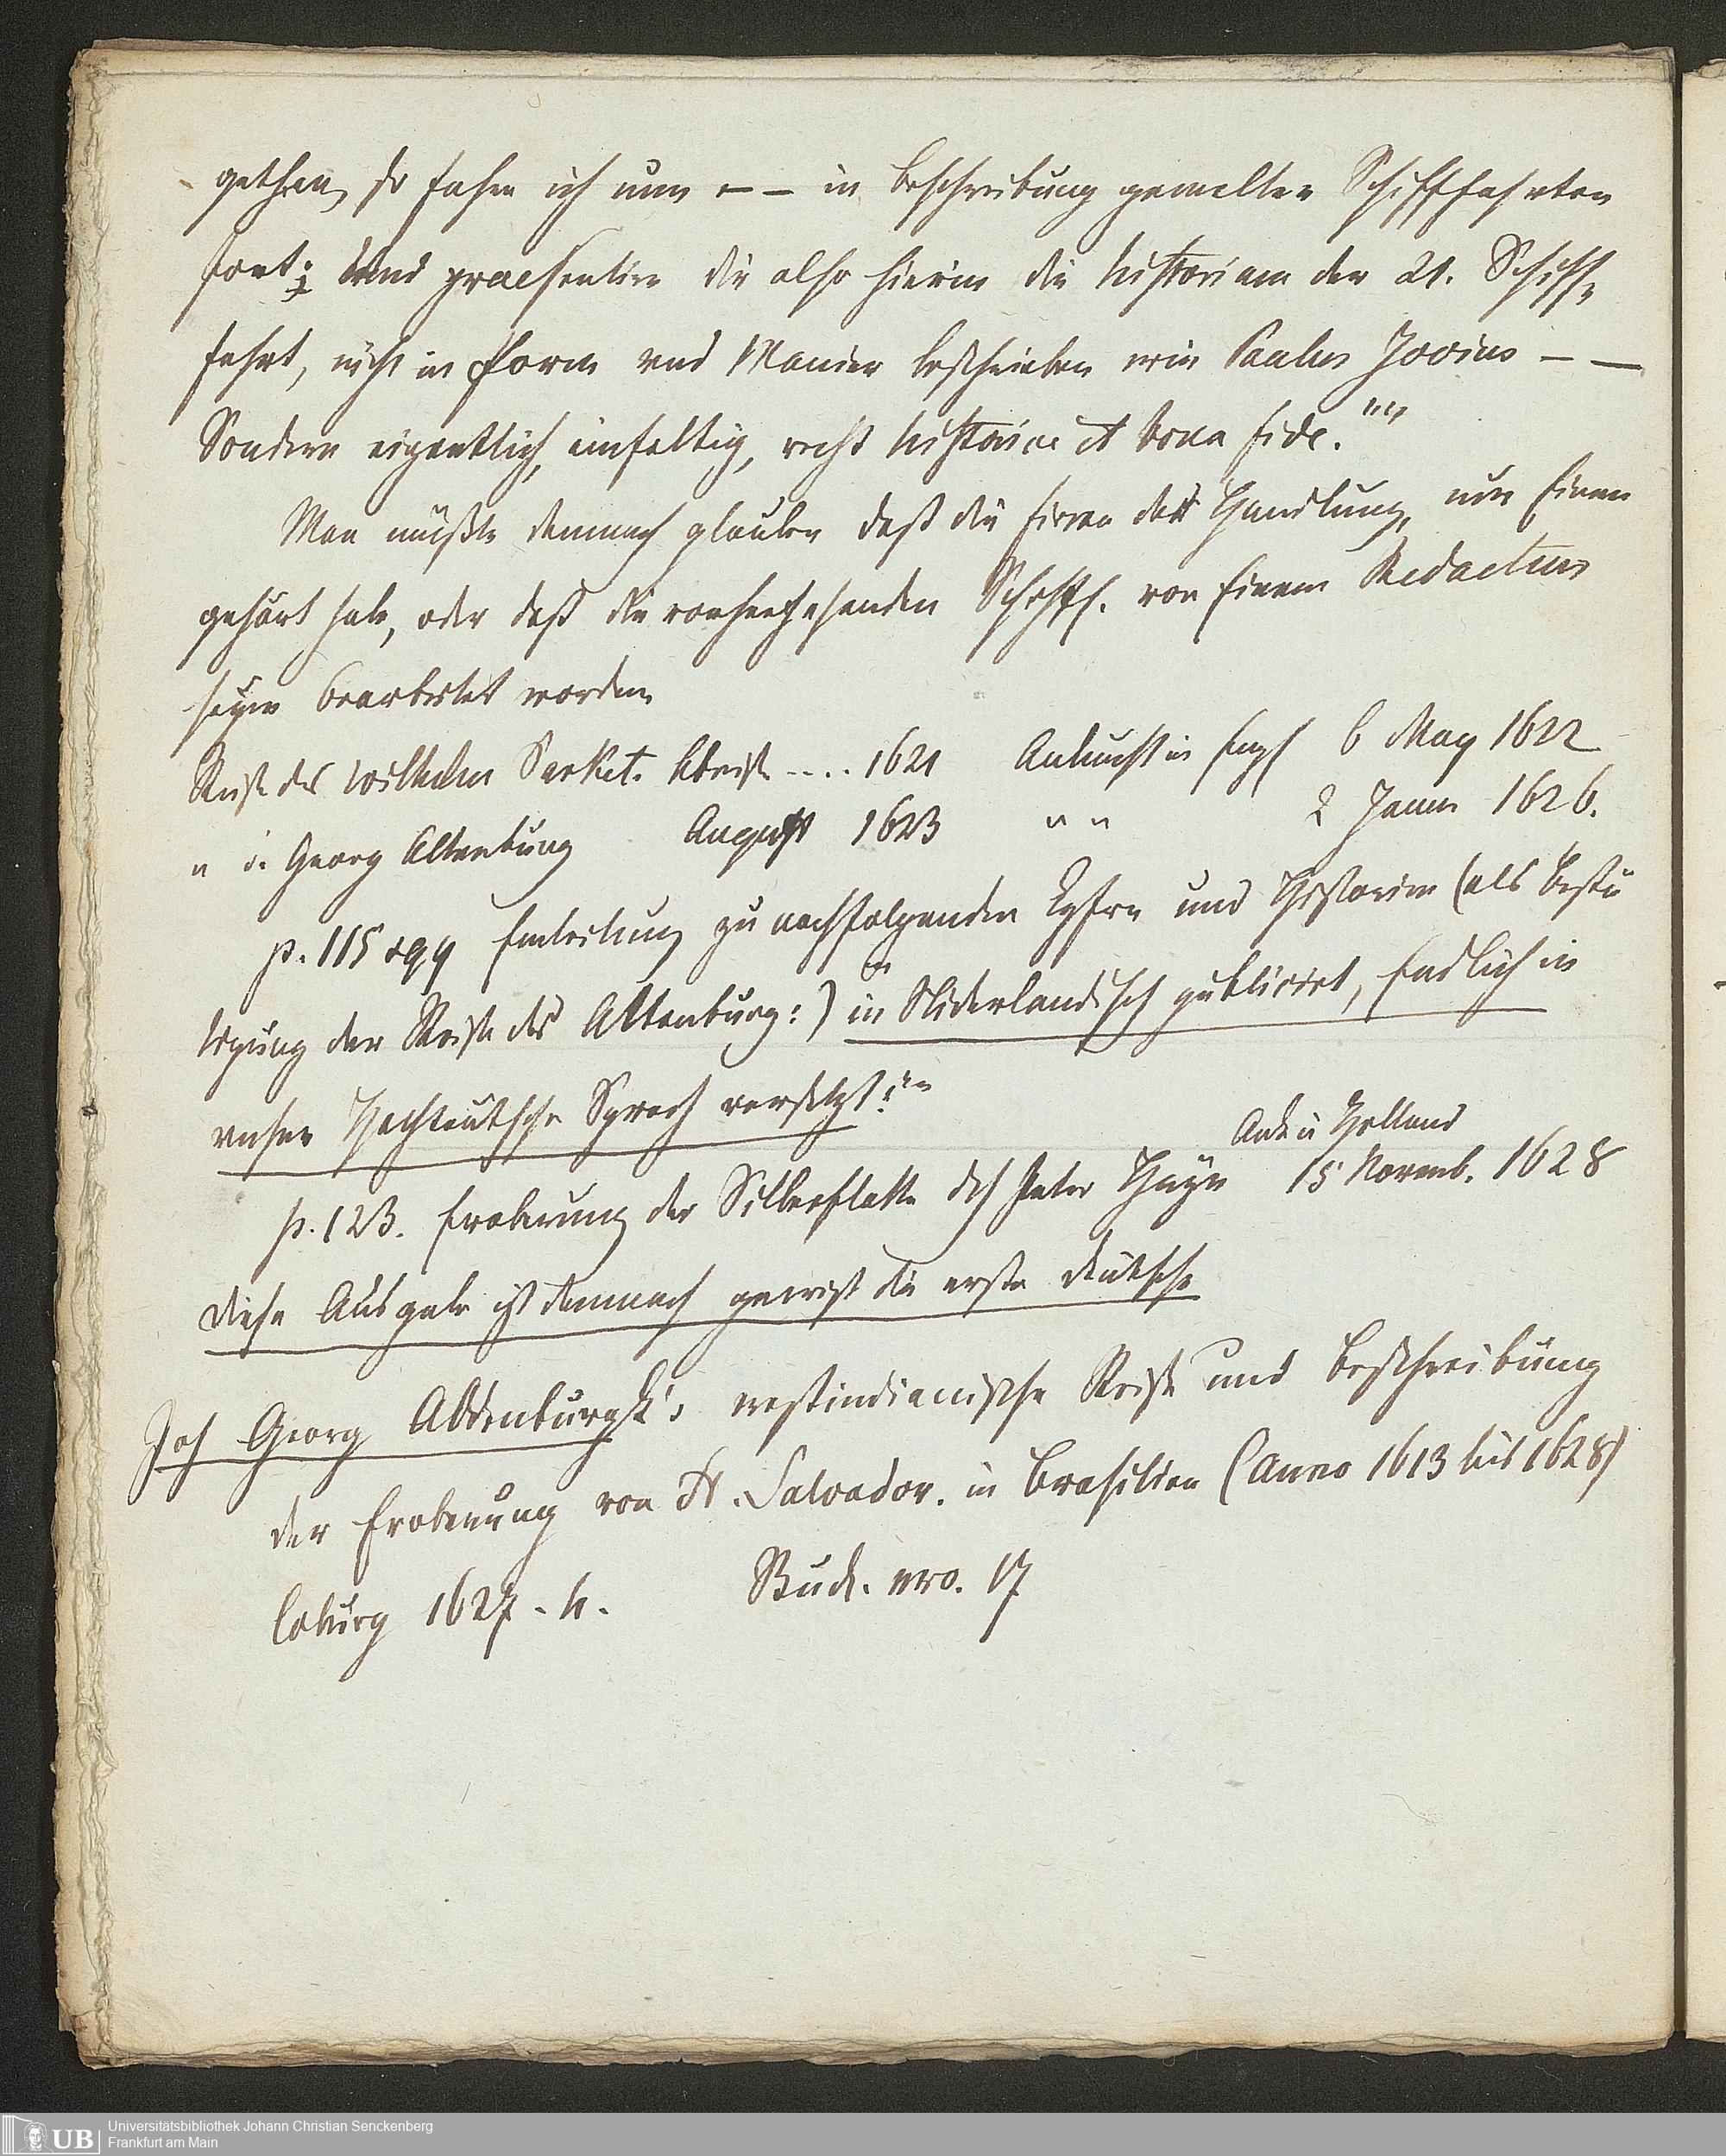 gethan, so fahre ich nun — — in Beschreibung gemelter Schifffahrten
fort; Und praesentire dir also hierin die historiam der 21. Schiff-
fahrt, nicht in Form und Manier beschrieben wie Paulus Jovius — —
Sondern eigentlich, einfaltig, recht historice et bona fide.""
Man müßte demnach glauben daß die Firma der Handlung, nur Einem
gehört habe, oder daß die vorhergehenden Schifff. von Einem Redacteur
seyen bearbeitet worden
Reise des Wilhelm Abreise .... 1621 Ankunft in 6 May 1622
" d. Georg Altenburg August 1623 " " 2 Jenner 1626.
p. 115 sqq Einleitung zu nachfolgenden und Historien (als
der Reise des Altenburg:) in Niderlandisch publicirt, Endlich in
unser Hochteutsche Sprach versetzt:""
Ank. in Holland
p. 123. Eroberung der Silberflotte des Peter Heyn 15 Novemb. 1628
diese Ausgabe ist demnach gewiß die erste deutsche
Joh Georg Aldenburgk's westindianische Reise und Beschreibung
der Eroberung von St. Salvador. in Brasilien (Anno 1613 bis 1628)
Coburg 1627. 4. nro. 17
Universitätsbibliothek Johann Christian Senckenberg
Frankfurt am Main
UB